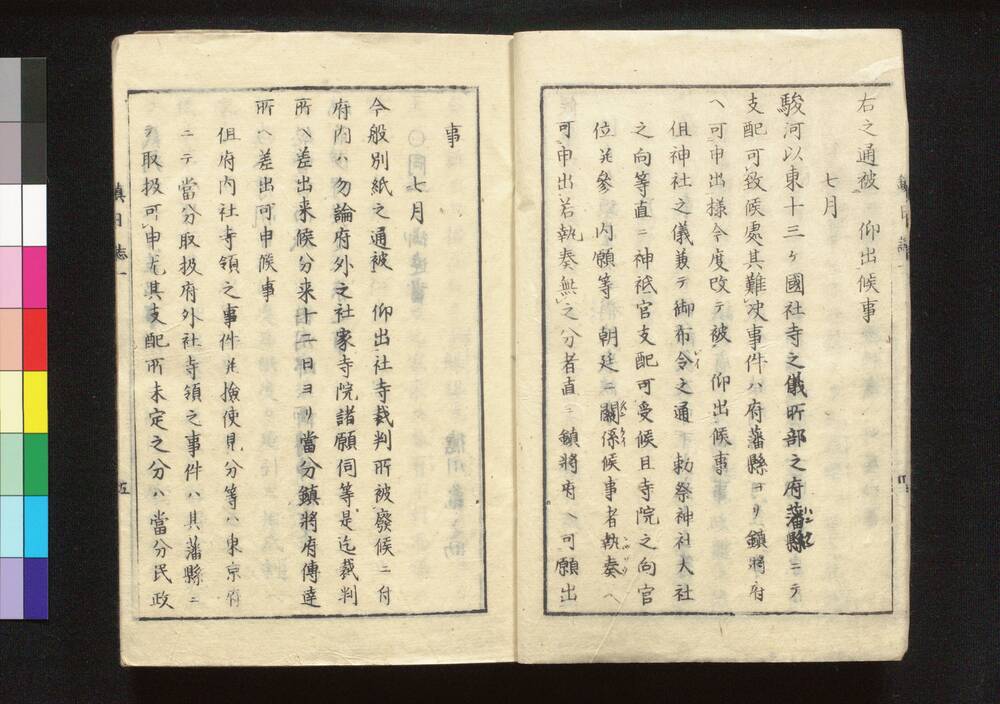 右之通被　仰出候事
七月
駿河以東十三ヶ國社寺之儀所部之府藩縣ニテ
支配可致候處其難决事件ハ府藩縣ヨリ鎮將府
ヘ可申出樣今度改テ被　仰出候事
但神社之儀兼テ御布令之通　勅祭神社大社
之向等直ニ神祇官支配可受候且寺院之向官
位並參　內願等　朝廷ニ關係候事者執奏ヘ
可申出若執奏無之分者直ニ鎮將府ヘ可願出
事
七月
今般別紙之通被　仰出社寺裁判所被廢候ニ付
府內ハ勿論府外之社家寺院諸願伺等是迄裁判
所ヘ差出来候分来十二日ヨリ當分鎮將府傳達
所ヘ差出可申候事
但府內社寺領之事件並撿使見分等ハ東京府
ニテ當分取扱府外社寺領之事件ハ其藩縣ニ
テ取扱可申尤其支配所未定之分ハ當分民政
鎮日誌一
五